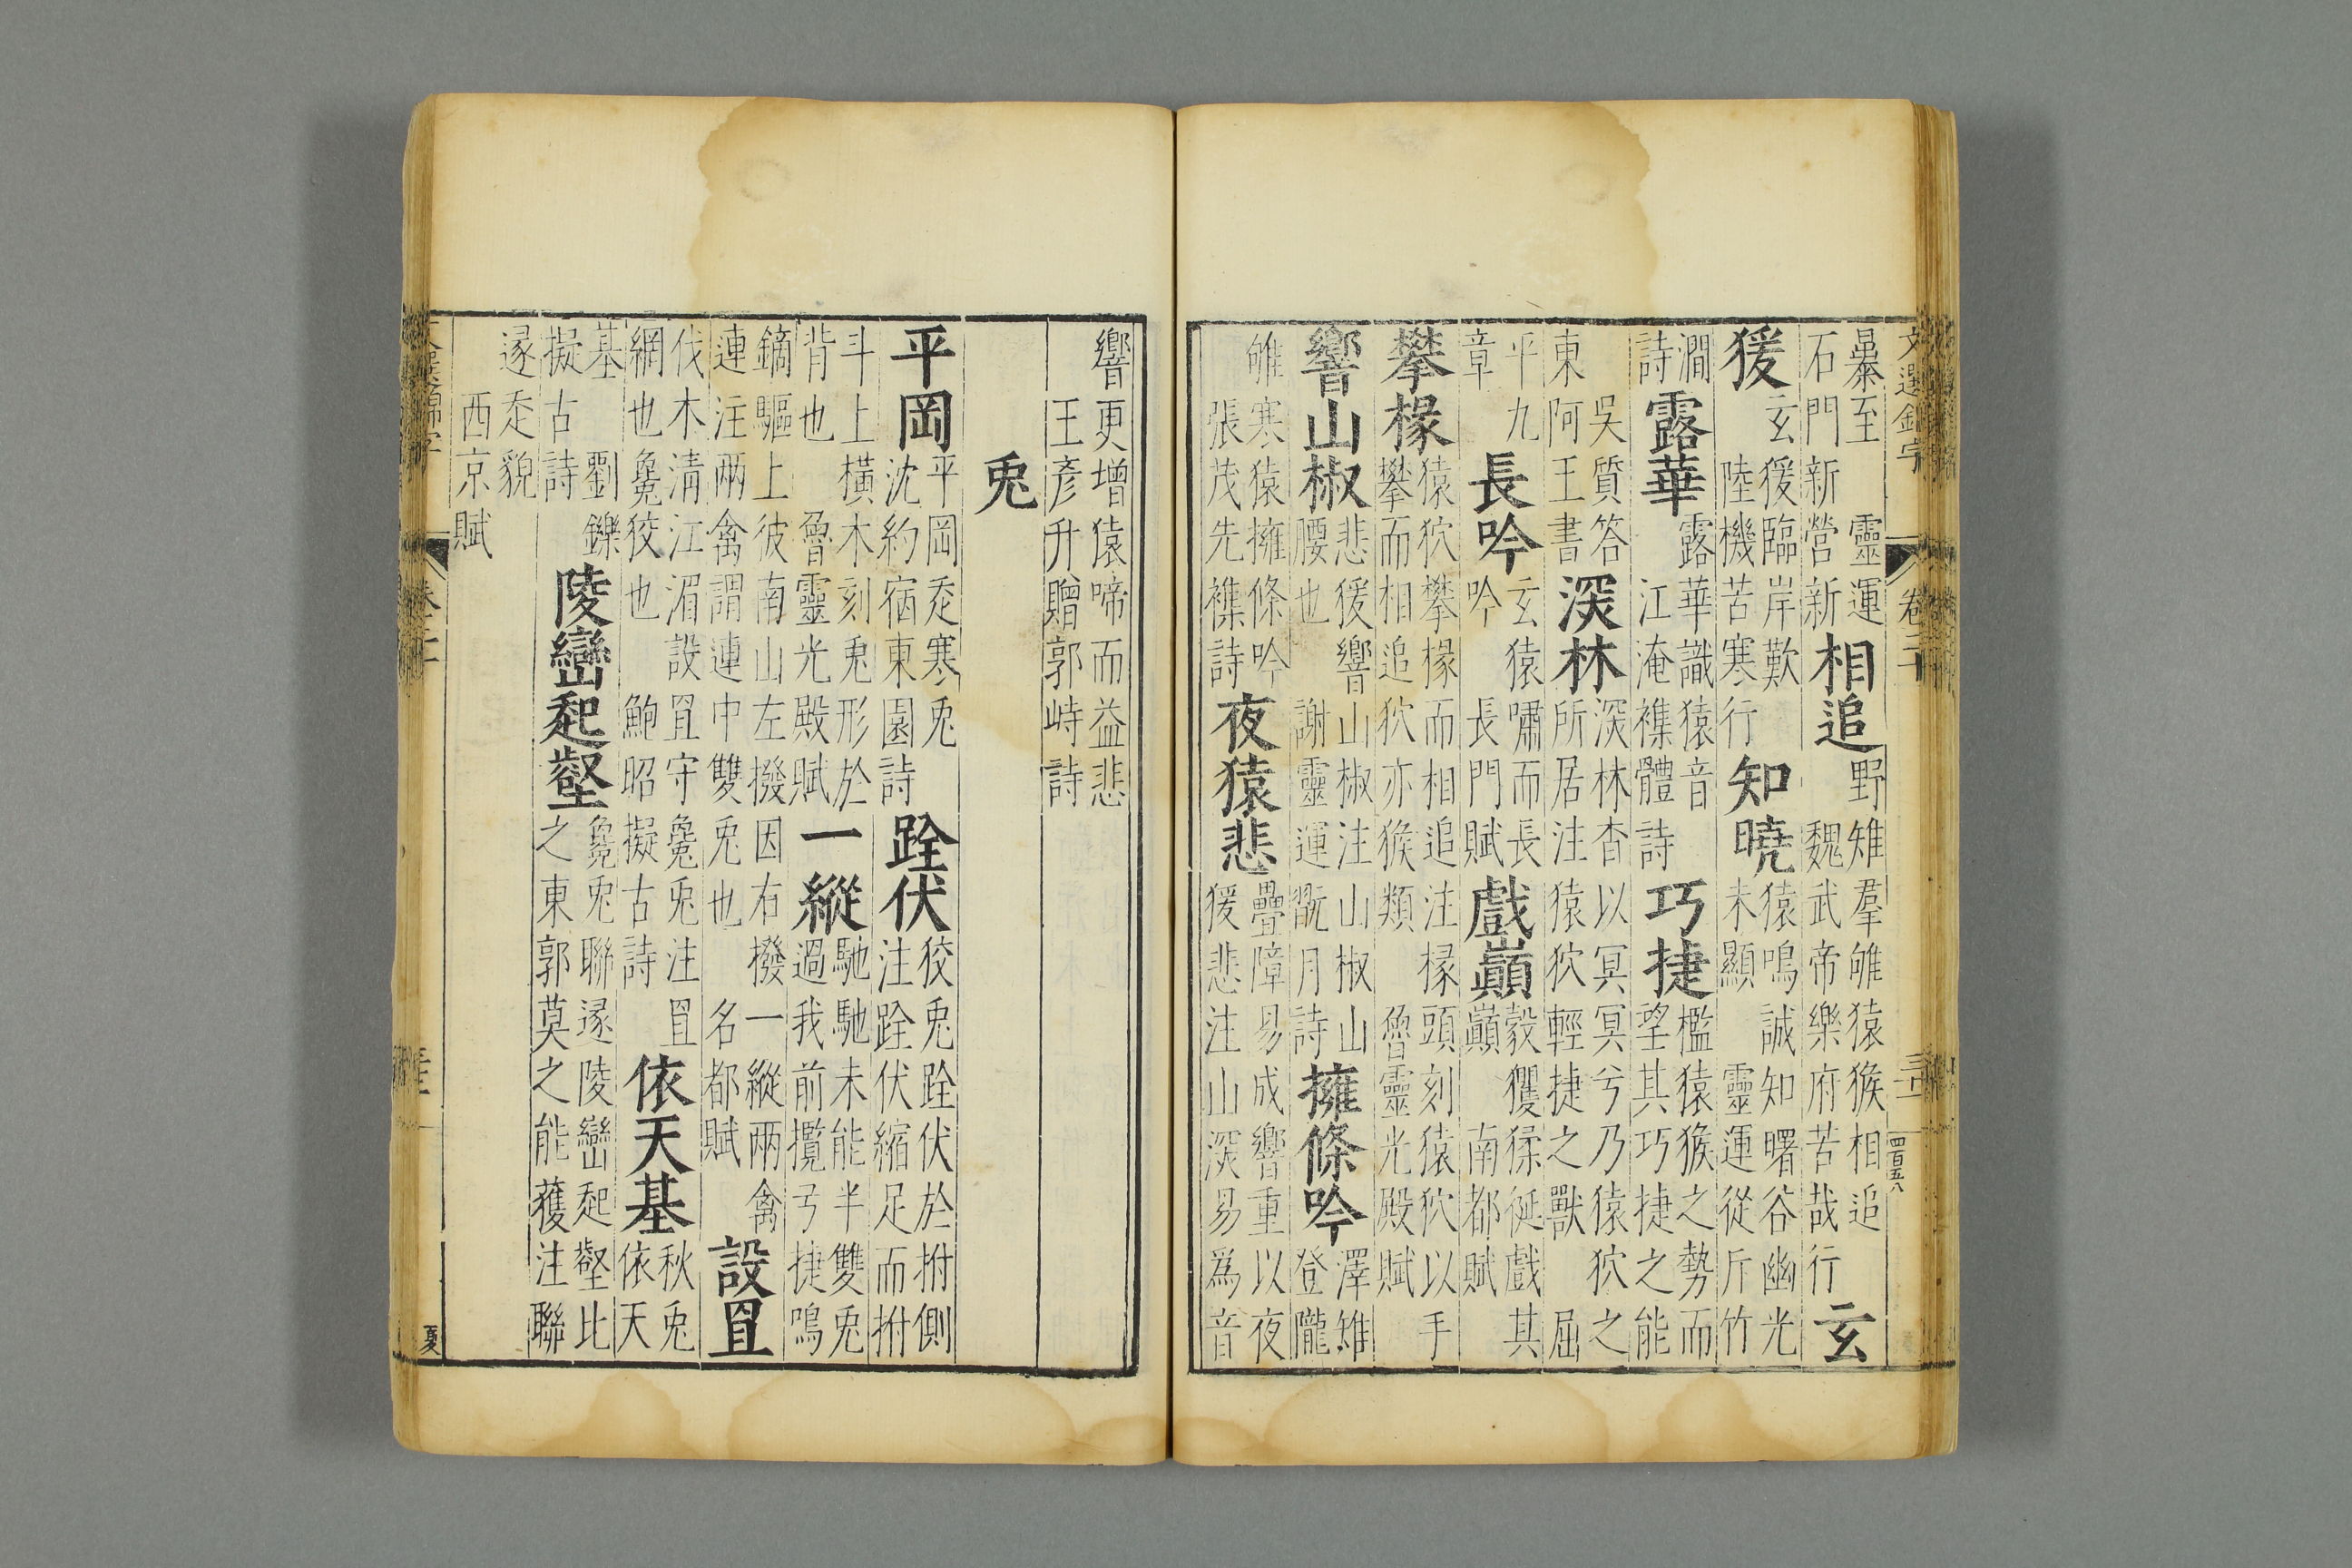 文選錦字 卷二十 四百五八
暴至 靈運石門新營新相追野雉羣雊猿猴相追 魏武帝樂府苦哉行玄
猨玄猨臨岸歎 陸機苦寒行知曉猿鳴誠知曙谷幽光未顯 靈運從斤竹
澗詩露華露華識猿音 江淹襍體詩巧捷檻猿猴之勢而望其巧捷之能
吳質答東阿王書深林深林杳以冥冥兮乃猿狖之所居注猿狖輕捷之獸 屈
平九章長吟玄猿嘯而長吟 長門賦戲巔豰玃猱狿戲其巔 南都賦
攀椽猿狖攀椽而相追注椽頭刻猿狖以手攀而相追狖亦猴類 魯靈光殿賦
響山椒悲猨響山椒注山椒山腰也 謝靈運翫月詩擁條吟澤雉登隴
雊寒猿擁條吟 張茂先襍詩夜猿悲疊障易成響重以夜猨悲注山深易爲音
響更增猿啼而益悲 王彥升贈郭峙詩
兎
平岡平岡走寒兎 沈約宿東園詩跧伏狡兎跧伏於拊側注跧伏縮足而拊
斗上橫木刻兎形於背也 魯靈光殿賦一縱馳馳未能半雙兎過我前攬弓捷鳴
鏑驅上彼南山左撥因右撥一縱兩禽連注兩禽謂連中雙兎也 名都賦設罝
伐木清江湄設罝守毚兎注罝網也毚狡也 鮑昭擬古詩依天基秋兎依天
基 劉鑠擬古詩陵巒起壑毚兎聯遂陵巒起壑比之東郭莫之能獲注聯
遂走貌 西京賦
夏